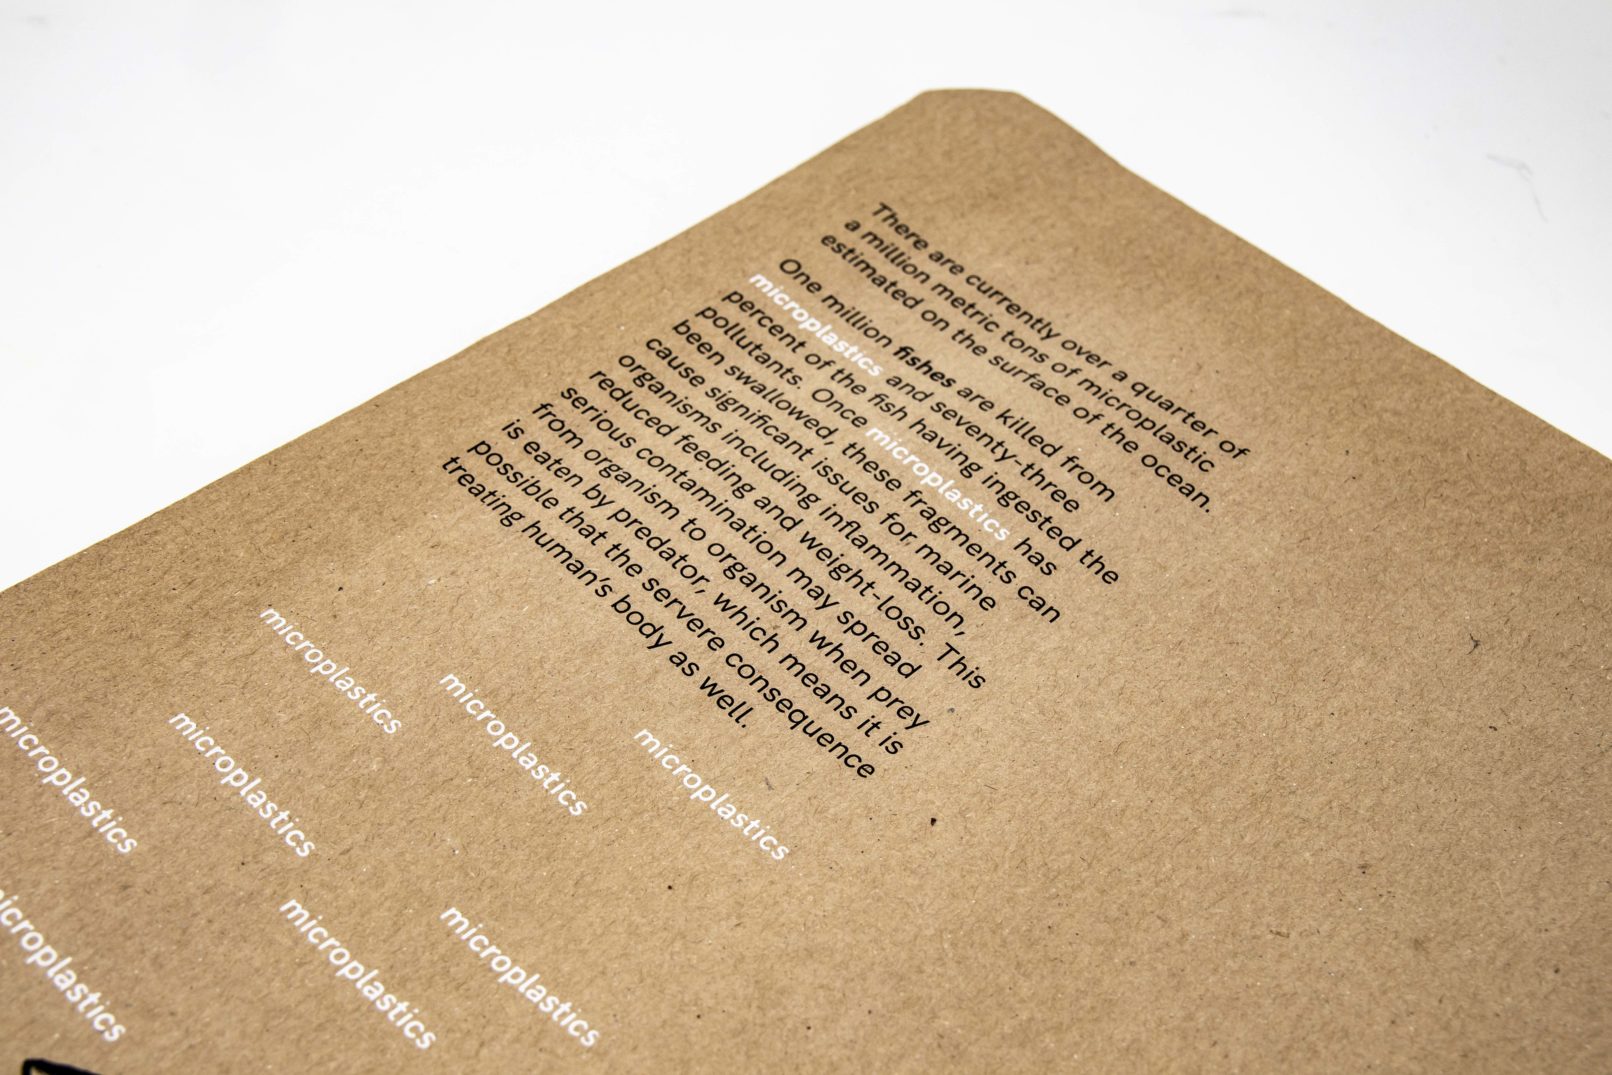 There are currently over a quarter of
a million metric tons of microplastic
estimated on the surface of the ocean.
One million fishes are killed from
microplastics and seventy-three
percent of the fish having ingested the
pollutants. Once microplastics has
been swallowed, these fragments can
cause significant issues for marine
organisms including inflammation,
reduced feeding and weight-loss. This
serious contamination may spread
from organism to organism when prey
is eaten by predator, which means it is
possible that the servere consequence
treating human's body as well.
microplastics
microplastics
microplastics
microplastics
microplastics
microplastics
microplastics
microplastics